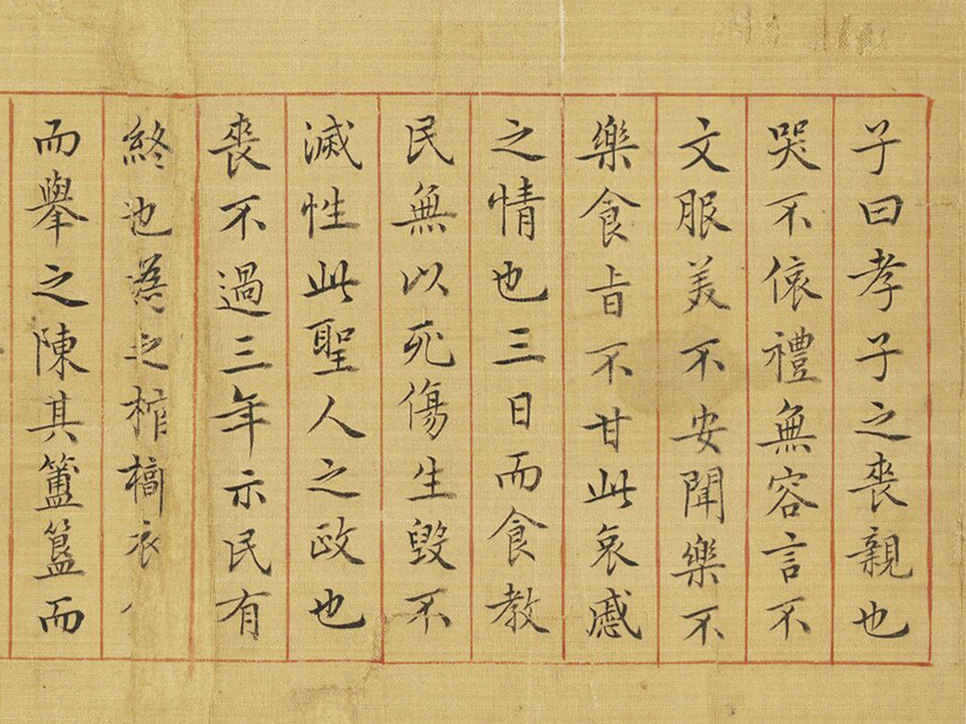 子曰孝子之喪親也
哭不偯禮無容言不
文服美不安聞樂不
樂食旨不甘此哀慼
之情也三日而食教
民無以死傷生毀不
滅性此聖人之政也
喪不過三年示民有
終也為之棺槨衣
而舉之陳其簠簋而